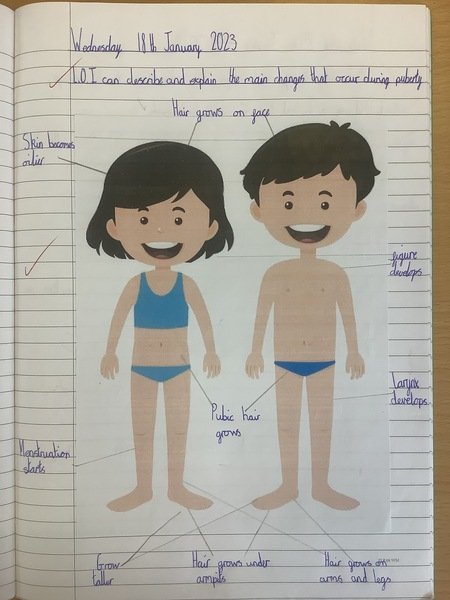 Wednesday 18th January 2023
L.O. I can describe and explain the main changes that occur during puberty
Hair grows on face
Skin becomes
oilier
figure
develops
Larynx
develops
Pubic hair
grows
Menstruation
starts
Grow
taller
Hair grows under
armpits
Hair grows on
arms and legs